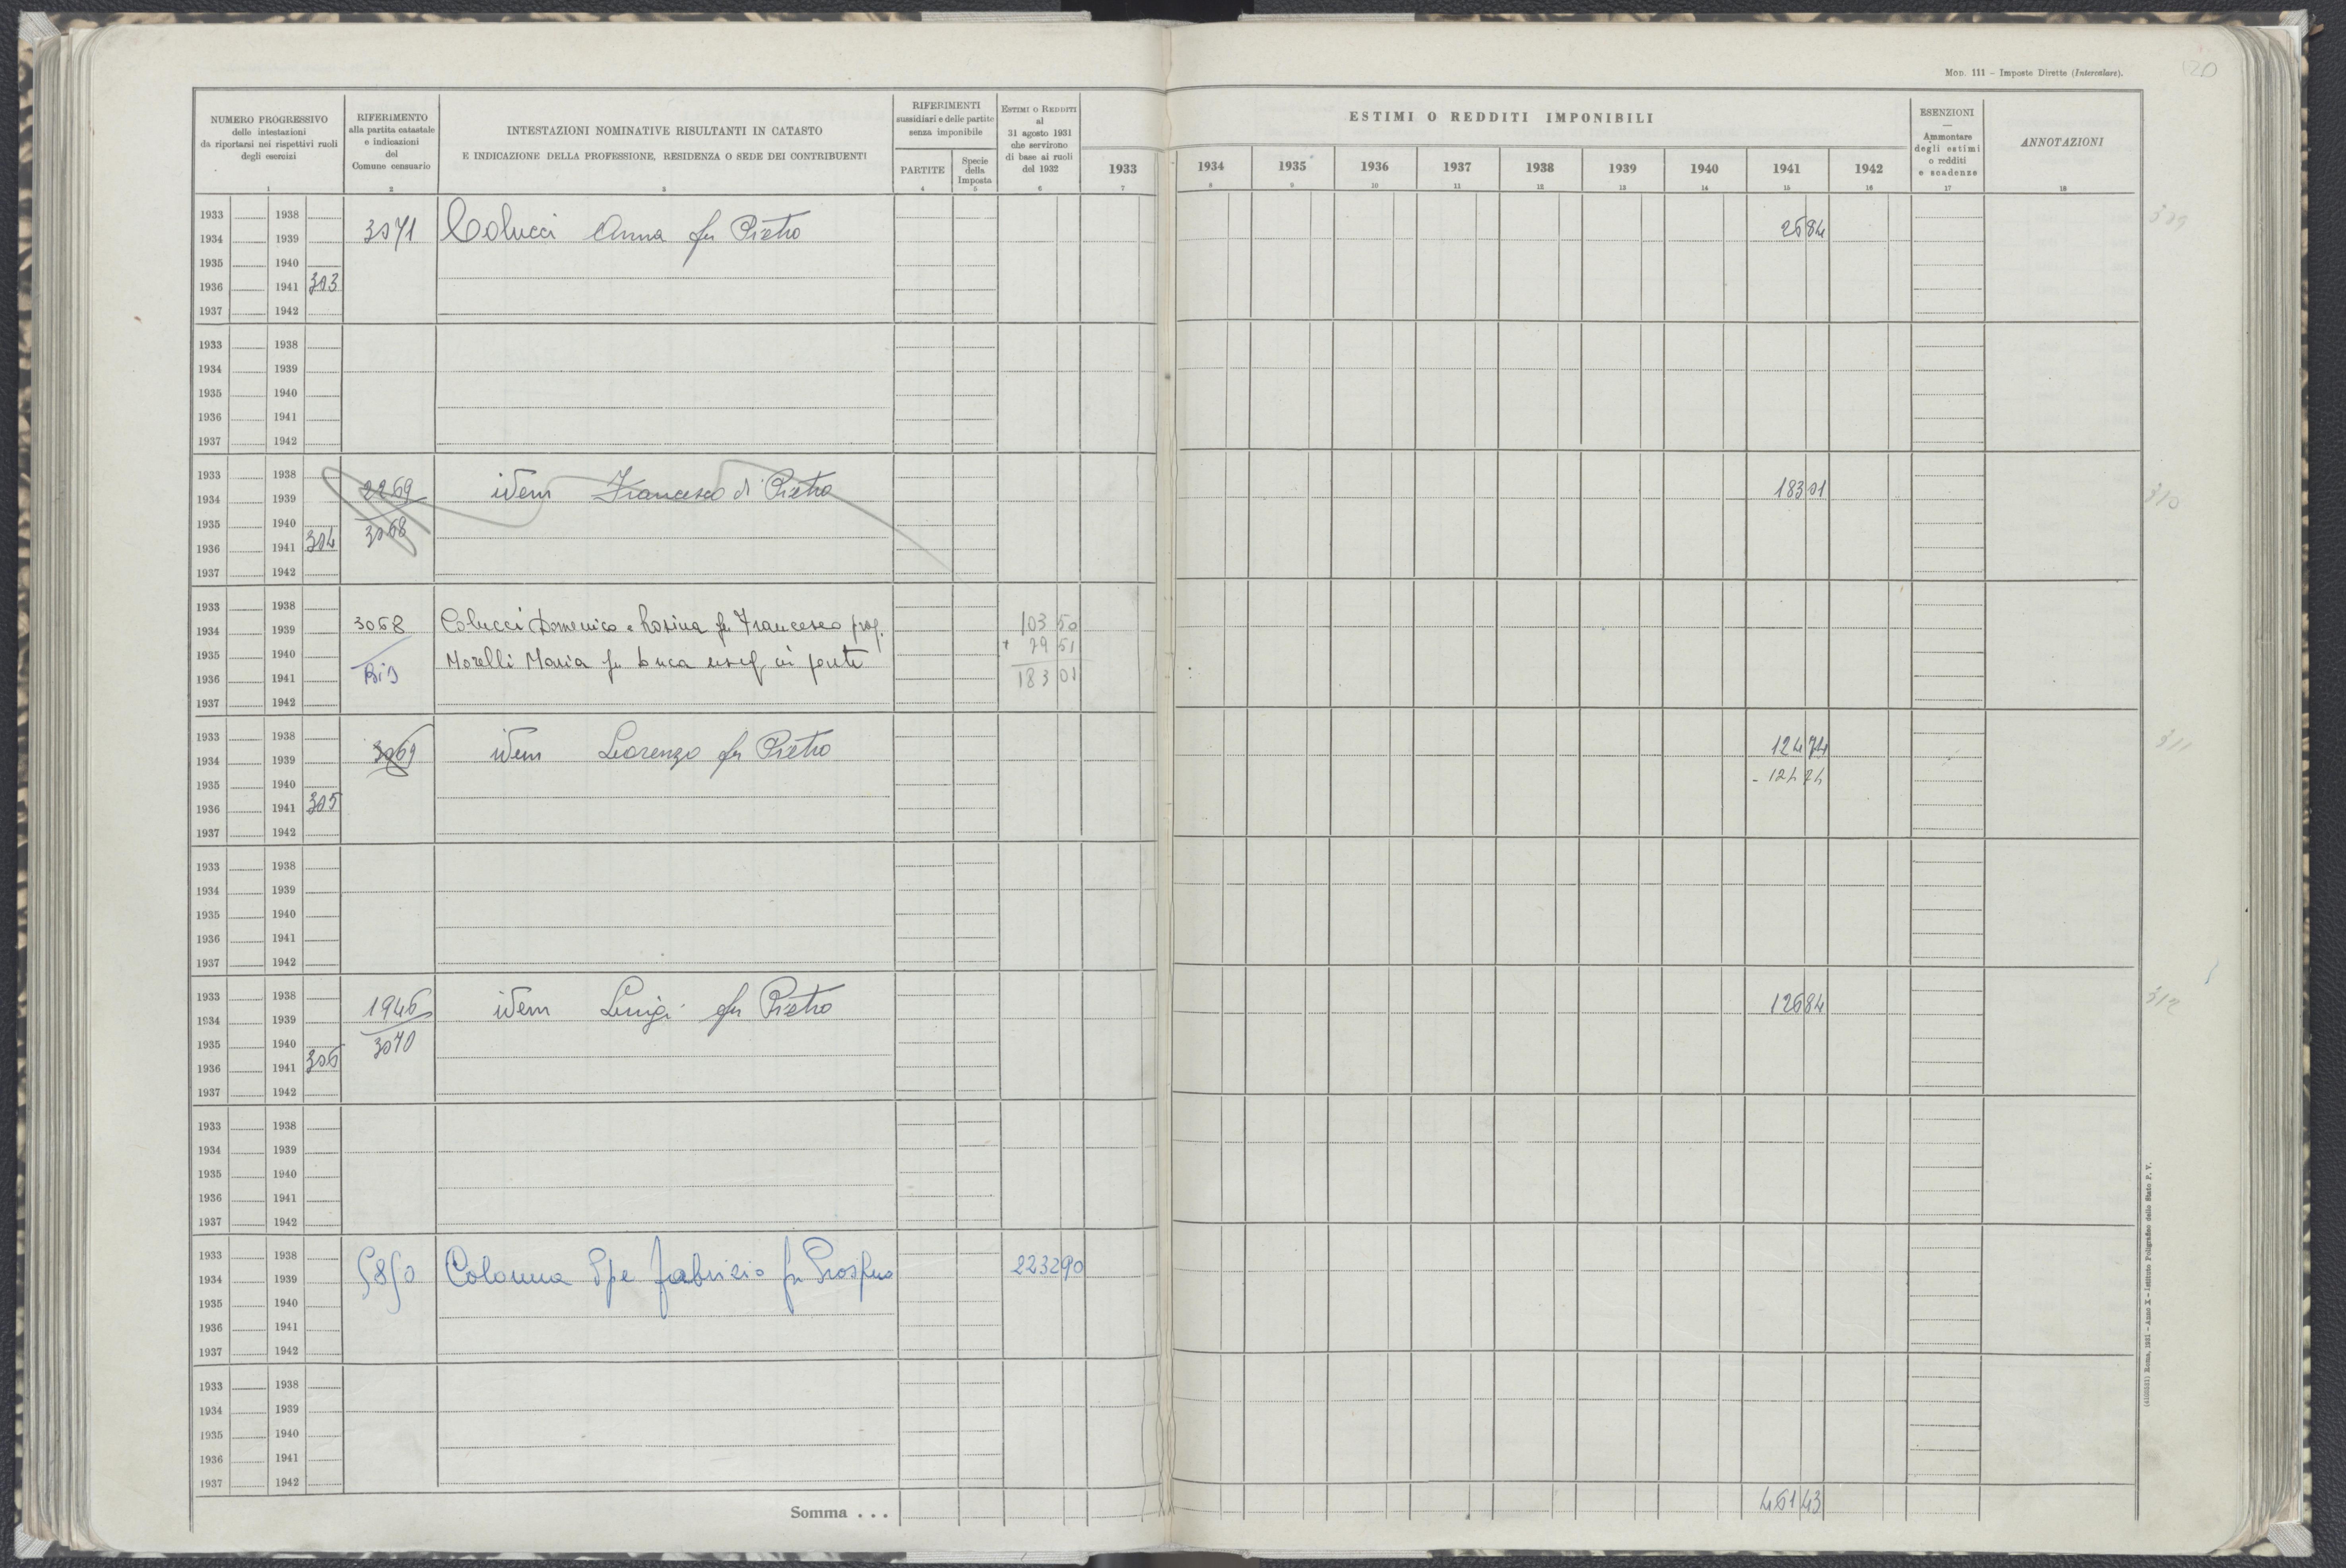 MOD. 111 – Imposte Dirette (Intercalare).
120
NUMERO PROGRESSIVO
delle intestazioni
da riportarsi nei rispettivi ruoli
degli esercizi
1
RIFERIMENTO
alla partita catastale
e indicazioni
del
Comune censuario
2
INTESTAZIONI NOMINATIVE RISULTANTI IN CATASTO
E INDICAZIONE DELLA PROFESSIONE, RESIDENZA O SEDE DEI CONTRIBUENTI
3
RIFERIMENTI
sussidiari e delle partite
senza imponibile
PARTITE
4
Specie
della
Imposta
5
ESTIMI O REDDITI
al
31 agosto 1931
che servirono
di base ai ruoli
del 1932
6
ESTIMI O REDDITI IMPONIBILI
1933 1934 1935 1936 1937 1938 1939 1940 1941 1942
7 8 9 10 11 12 13 14 15 16
ESENZIONI
—
Ammontare
degli estimi
o redditi
e scadenze
17
ANNOTAZIONI
18
1933 1938
1934 1939 3071 Colucci Anna fu Pietro 26 84 309
1935 1940
1936 1941 303
1937 1942
1933 1938
1934 1939
1935 1940
1936 1941
1937 1942
1933 1938 2269 idem Francesco di Pietro 183 01 310
1934 1939
1935 1940 3068
1936 1941 304
1937 1942
1933 1938
1934 1939 3068 Colucci Domenico e Rosina fu Francesco prop. 103 50
1935 1940 Morelli Maria fu Luca usuf. in parte + 79 51
1936 1941 Bis 183 01
1937 1942
1933 1938
1934 1939 3069 idem Lorenzo fu Pietro 124 74 311
1935 1940 - 124 74
1936 1941 305
1937 1942
1933 1938
1934 1939
1935 1940
1936 1941
1937 1942
1933 1938 1946 idem Luigi fu Pietro 126 84 312
1934 1939
1935 1940 3070
1936 1941 306
1937 1942
1933 1938
1934 1939
1935 1940
1936 1941
1937 1942
1933 1938
1934 1939 5850 Colonna Fabrizio fu Prospero 2232 90
1935 1940
1936 1941
1937 1942
1933 1938
1934 1939
1935 1940
1936 1941
1937 1942
Somma . . . 461 43
(4103931) Roma, 1931 – Anno X – Istituto Poligrafico dello Stato P. V.